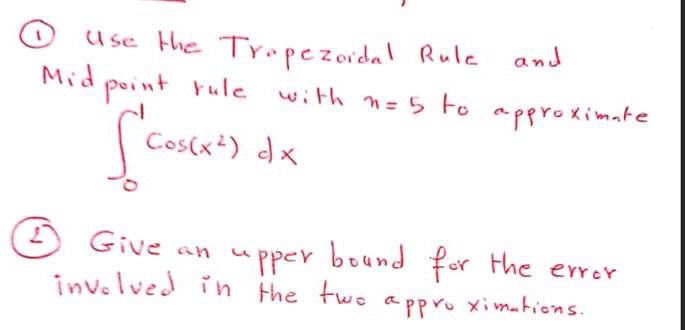 ① Use the Trapezoidal Rule and
Midpoint rule with n=5 to approximate
∫₀¹ Cos(x²) dx
② Give an upper bound for the error
involved in the two approximations.